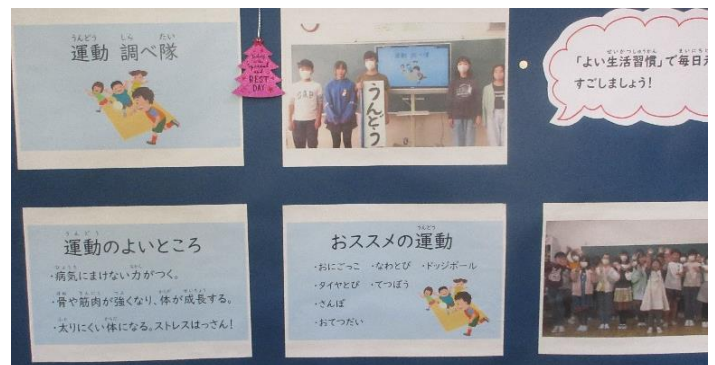 運動 調べ隊
うんどう
「よい生活習慣」で毎日
すごしましょう!
運動のよいところ
・病気にまけない力がつく。
・骨や筋肉が強くなり、体が成長する。
・太りにくい体になる。ストレスはっさん!
おススメの運動
・おにごっこ ・なわとび ・ドッジボール
・タイヤとび ・てつぼう
・さんぽ
・おてつだい
BEST
DAY